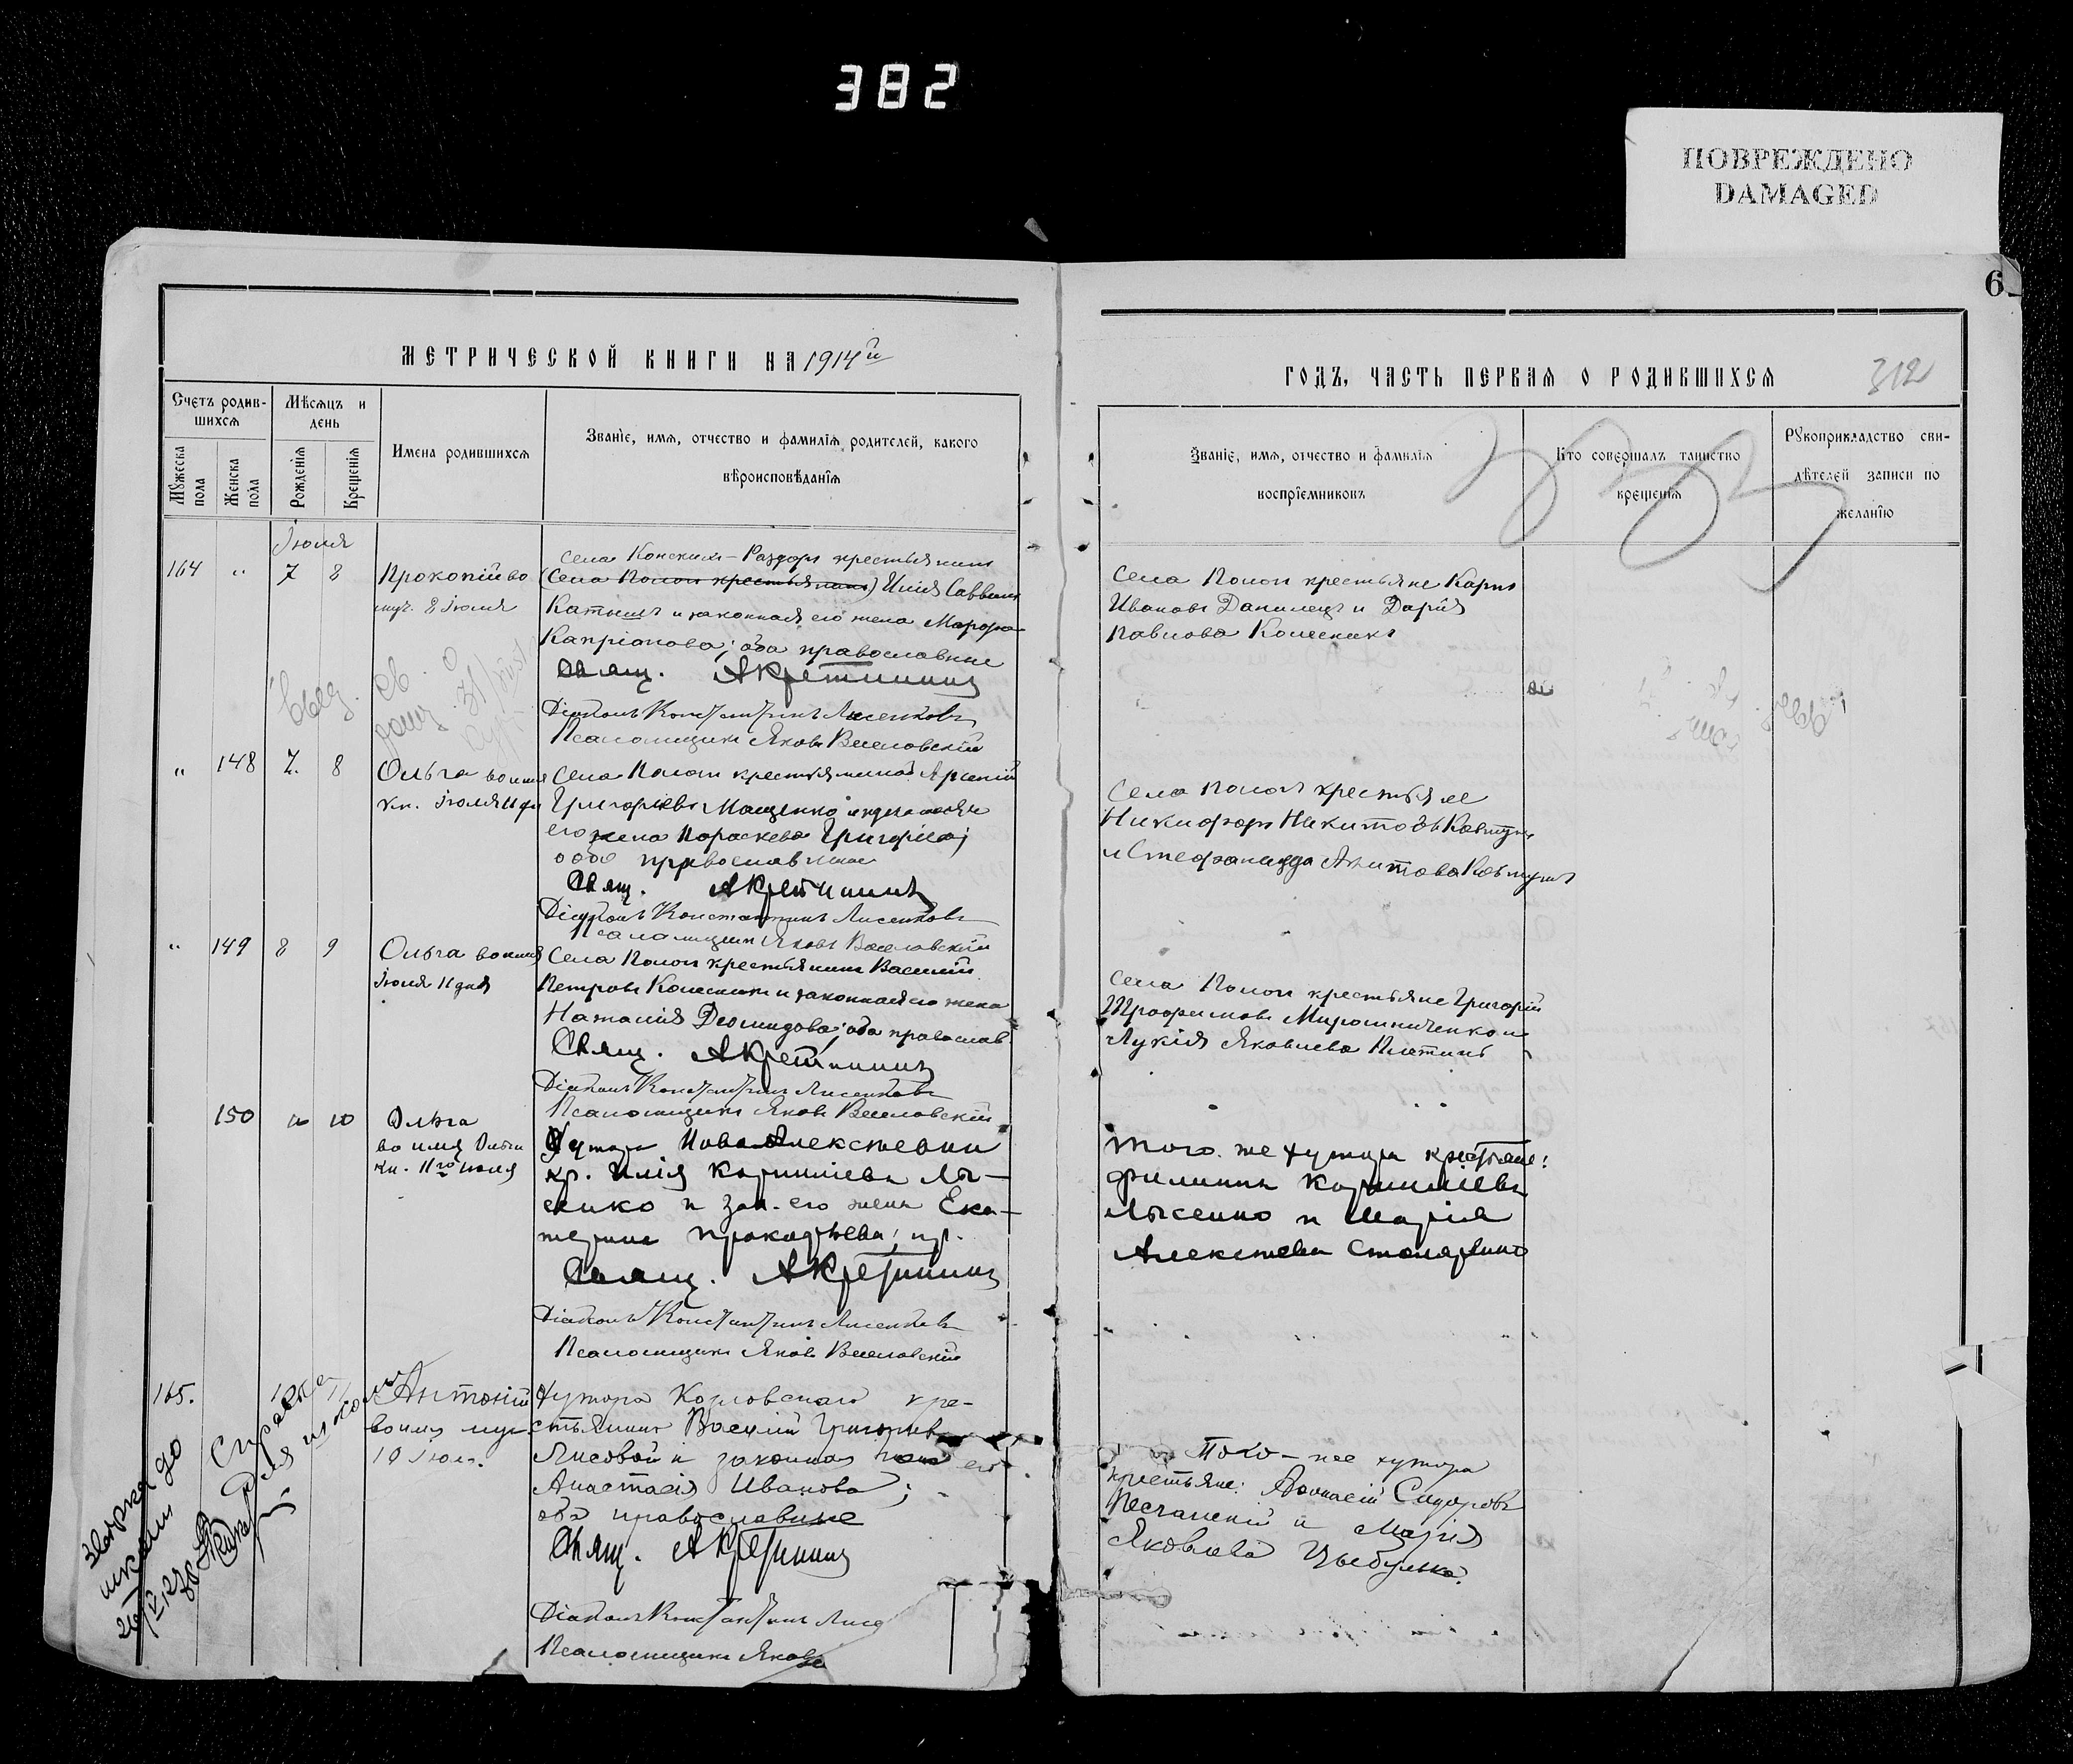 382
ПОВРЕЖДЕНО
DAMAGED
6
МЕТРИЧЕСКОЙ КНИГИ НА 1914й
ГОДЪ, ЧАСТЬ ПЕРВАЯ О РОДИВШИХСЯ
312
Счетъ родив-
шихся
Мѣсяцъ и
день
Мужеска
пола
Женска
пола
Рожденія
Крещенія
Имена родившихся
Званіе, имя, отчество и фамилія родителей, какого
вѣроисповѣданія
Званіе, имя, отчество и фамилія
воспріемниковъ
Кто совершалъ таинство
крещенія
Рукоприкладство сви-
дѣтелей записи по
желанію
Іюля
164 " 7 8
Прокопій во
муч. 8 іюля
Села Конскихъ-Раздоръ крестьянинъ
(Села Пологъ крестьянинъ) Илія Саввинъ
и законная его жена Марфа
оба православные
Свящ. А Кретининъ
Діаконъ Константинъ Лисенковъ
Псаломщикъ Яковъ Веселовскій
Села Пологъ крестьяне Карпъ
Ивановъ Данилецъ и Дарія
Павлова Колесникъ
" 148 7. 8
Ольга во имя
кн. іюля 11 дня
Села Пологъ крестьянинъ Арсеній
Григорьевъ Мащенко и законная
его жена Параскева Григорьева;
оба православные
Свящ. А Кретининъ
Діаконъ Константинъ Лисенковъ
Псаломщикъ Яковъ Веселовскій
Села Пологъ крестьяне
Никифоръ Никитовъ Ковтунъ
и Стефанида Ковтунъ
" 149 8 9
Ольга во имя
іюля 11 дня
Села Пологъ крестьянинъ Василій
Петровъ Колесникъ и законная его жена
Наталія Деомидова; оба православ.
Свящ. А Кретининъ
Діаконъ Константинъ Лисенковъ
Псаломщикъ Яковъ Веселовскій
Села Пологъ крестьяне Григорій
Трофимовъ Мирошниченко и
Лукія Яковлева Плетинь
150 10
Ольга
во имя Ольги
кн. 11го іюля
Хутора Ново-Алексѣевки
кр. Илія Корниліевъ Лы-
сенко и зак. его жена Ека-
терина пр.
Свящ. А Кретининъ
Діаконъ Константинъ Лисенковъ
Псаломщикъ Яковъ Веселовскій
Того же хутора крестьяне:
Филиппъ Корниліевъ
Лысенко и Марія
Алексѣева
165.
Антоній
во имя муч.
10 іюл.
Хутора кре-
стьянинъ Василій Григорьевъ
Лисовой и законная жена его
Анастасія Иванова;
оба православные
Свящ. А Кретининъ
Діаконъ Константинъ Лисе
Псаломщикъ Яковъ
Того-же хутора
крестьяне: Аѳанасій Сидоровъ
Песчанскій и Марія
Яковлева Цыбулька.
Справка
для школы